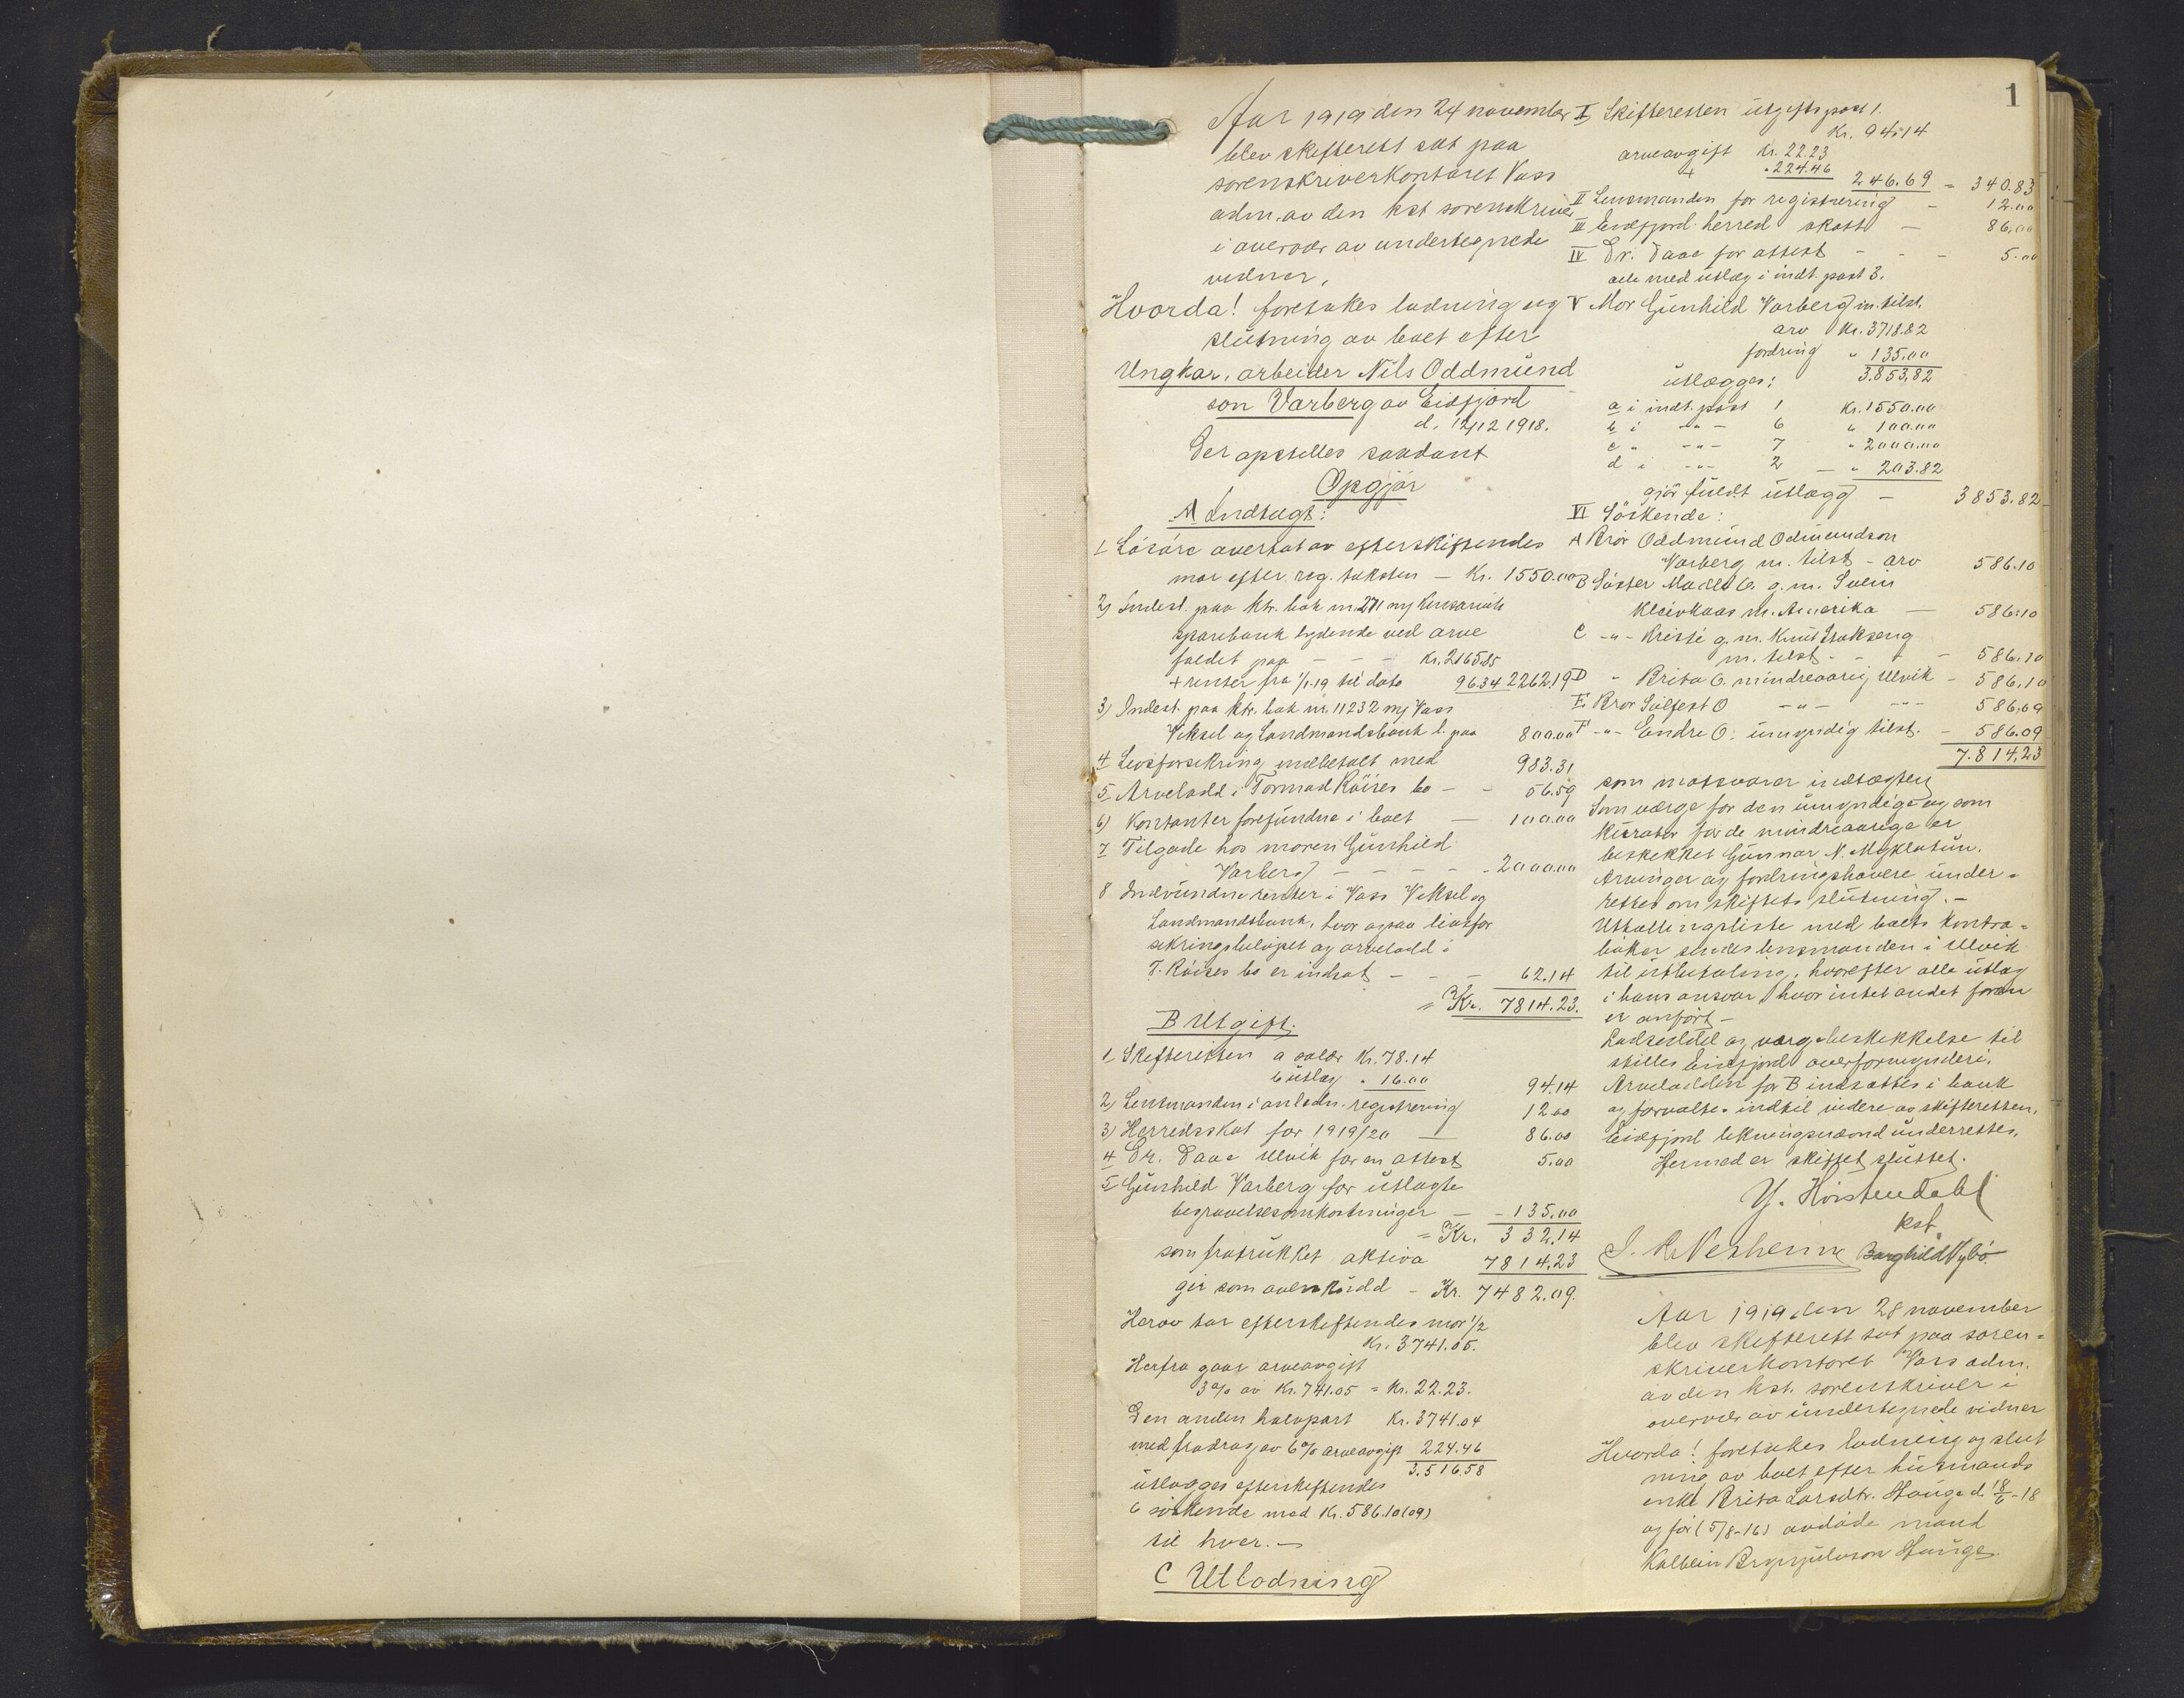 1
Aar 1919 den 24 november
blev skifteret sat paa
sorenskriverkontoret Voss
adm. av den kst sorenskriver
i overvær av undertegnede
vidner,
Hvorda! foretokes lodning og
slutning av boet efter
Ungkar, arbeider Nils Oddmund
son Varberg av Eidfjord
d. 12/12 1918.
Der opstilles saadant
Opgjör
A Indtægt:
1 Lösöre overtat av efterskiftendes
mor efter reg. taksten - Kr. 1550.00
2) Indest. paa ktr. bok nr. 271
sparebank lydende ved arve
faldet paa - - - Kr. 2165.85
+ renter fra 1/1.19 til dato 96.34 2262.19
3) Indest. paa ktr. bok nr. 11232 m/ Voss
Veksel og Landmandsbank l. paa 800.00
4 Livsforsikring indbetalt med 983.31
5 Arvelodd i Tormod Röises bo - - 56.59
6) Kontanter forefundne i boet - 100.00
7 Tilgode hos moren Gunhild
Varberg - - - - - 2000.00
8 Indvundne renter i Voss Veksel og
Landmandsbank, hvor ogsaa livsfor
sikringsbelöpet og arvelodd i
T. Röises bo er indsat - - - 62.14
= Kr. 7814.23.
B Utgift.
1 Skifteretten a salær Kr. 78.14
b utlæg " 16.00 94.14
2) Lensmanden i anledn. registrering 12.00
3) Herredsskat for 1919/20 - 86.00
4 Dr. Daae Ulvik for en attest 5.00
5 Gunhild Varberg for utlagte
begravelsesomkostninger - - 135.00
= Kr. 332.14
som fratrukket aktiva 7814.23
gir som overskudd - Kr. 7482.09.
Herav tar efterskiftendes mor 1/2
Kr. 3741.05.
Herfra gaar arveavgift
3% av Kr. 741.05 = Kr. 22.23.
Den anden halvpart Kr. 3741.04
med fradrag av 6% arveavgift 224.46
3.516.58
utlægges efterskiftendes
6 söskende med Kr. 586.10 (09)
til hver. -
C Utlodning
I Skifteretten utgiftspost 1.
Kr. 94.14
arveavgift Kr. 22.23
+ " 224.46 246.69 = 340.83
II Lensmanden for registrering - 12.00
III Eidfjord herred skatt - 86.00
IV Dr. Daae for attest - - - 5.00
alle med utlæg i indt. post 3.
V Mor Gunhild Varberg m. tilst.
arv Kr. 3718.82
fordring " 135.00
utlægges: 3.853,82
a i indt. post 1 Kr. 1550.00
b i -"- 6 " 100.00
c " -"- 7 " 2000.00
d i -"- 2 - " 203.82
gjör fuldt utlægg - 3853.82
VI Söskende:
A Bror Oddmund Odmundson
Varberg m. tilst - arv 586.10
B Söster O. g.m. Svein
Kleivkaas m. Amerika - 586.10
C -"- Kristi g.m. Knut
m. tilst - - - 586.10
D " Brita O. mindreaarig Ulvik - 586.10
E Bror Sulfest O -"- -"- 586.09
F -"- Endre O. umyndig tilst. - 586.09
7.814,23
som motsvarer indtægten
Som værge for den umyndige og som
kurator for de mindreaarige er
beskikket Gunnar N. Myklatun.
Arvinger og fordringshavere under=
rettes om skiftets slutning. -
Utbetalingsliste med boets kontra=
böker sendes lensmanden i Ulvik
til utbetaling, hvorefter alle utlæg
i hans ansvar hvor intet andet foran
er anfört -
Lodseddel og værgebeskikkelse til
stilles Eidfjord overformynderi.
Arvelodden for B indsættes i bank
og forvaltes indtil videre av skifteretten.
Eidfjord likningsnævnd underrettes.
Hermed er skiftet sluttet.
kst.
Borghild Nybö
Aar 1919 den 28 november
blev skifteret sat paa soren=
skriverkontoret Voss adm.
av den kst. sorenskriver i
overvær av undertegnede vidner
Hvorda! foretokes lodning og slut
ning av boet efter husmands
enke Brita Larsdtr. Hauge d. 18/6-18
og för (5/8-16) avdöde mand
Kolbein Brynjulvson Hauge.